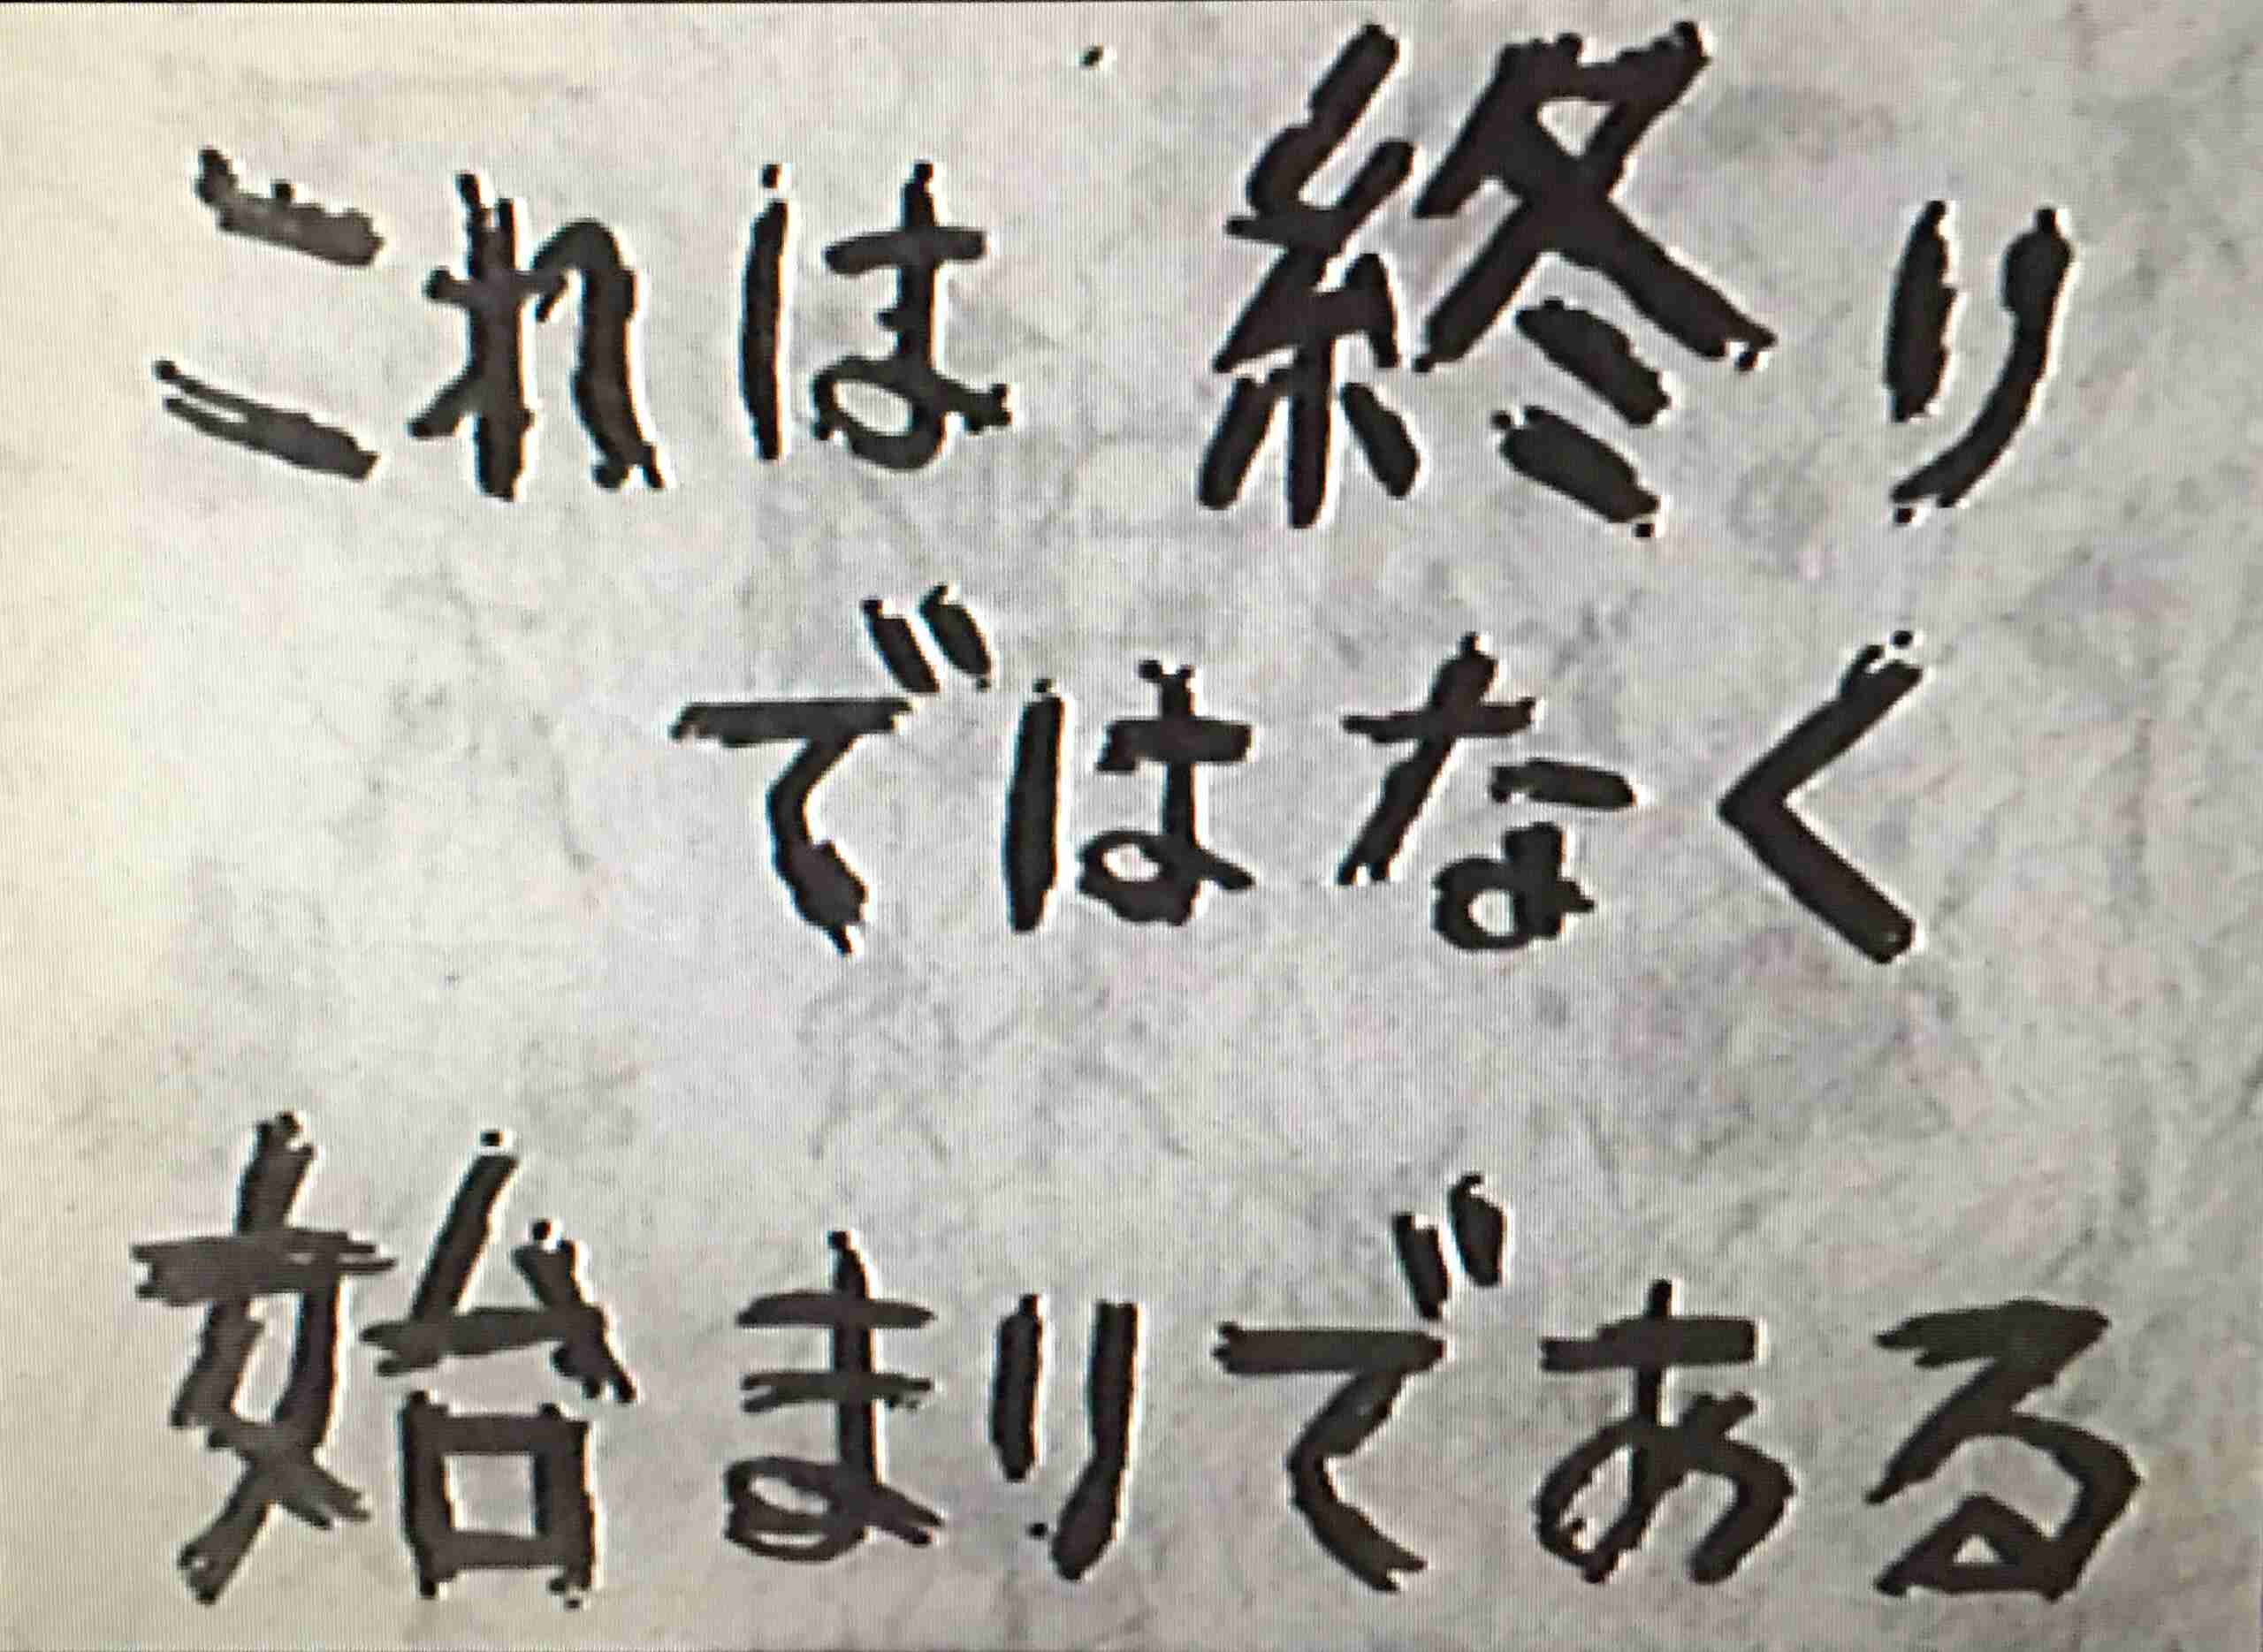 これは終り
ではなく
始まりである